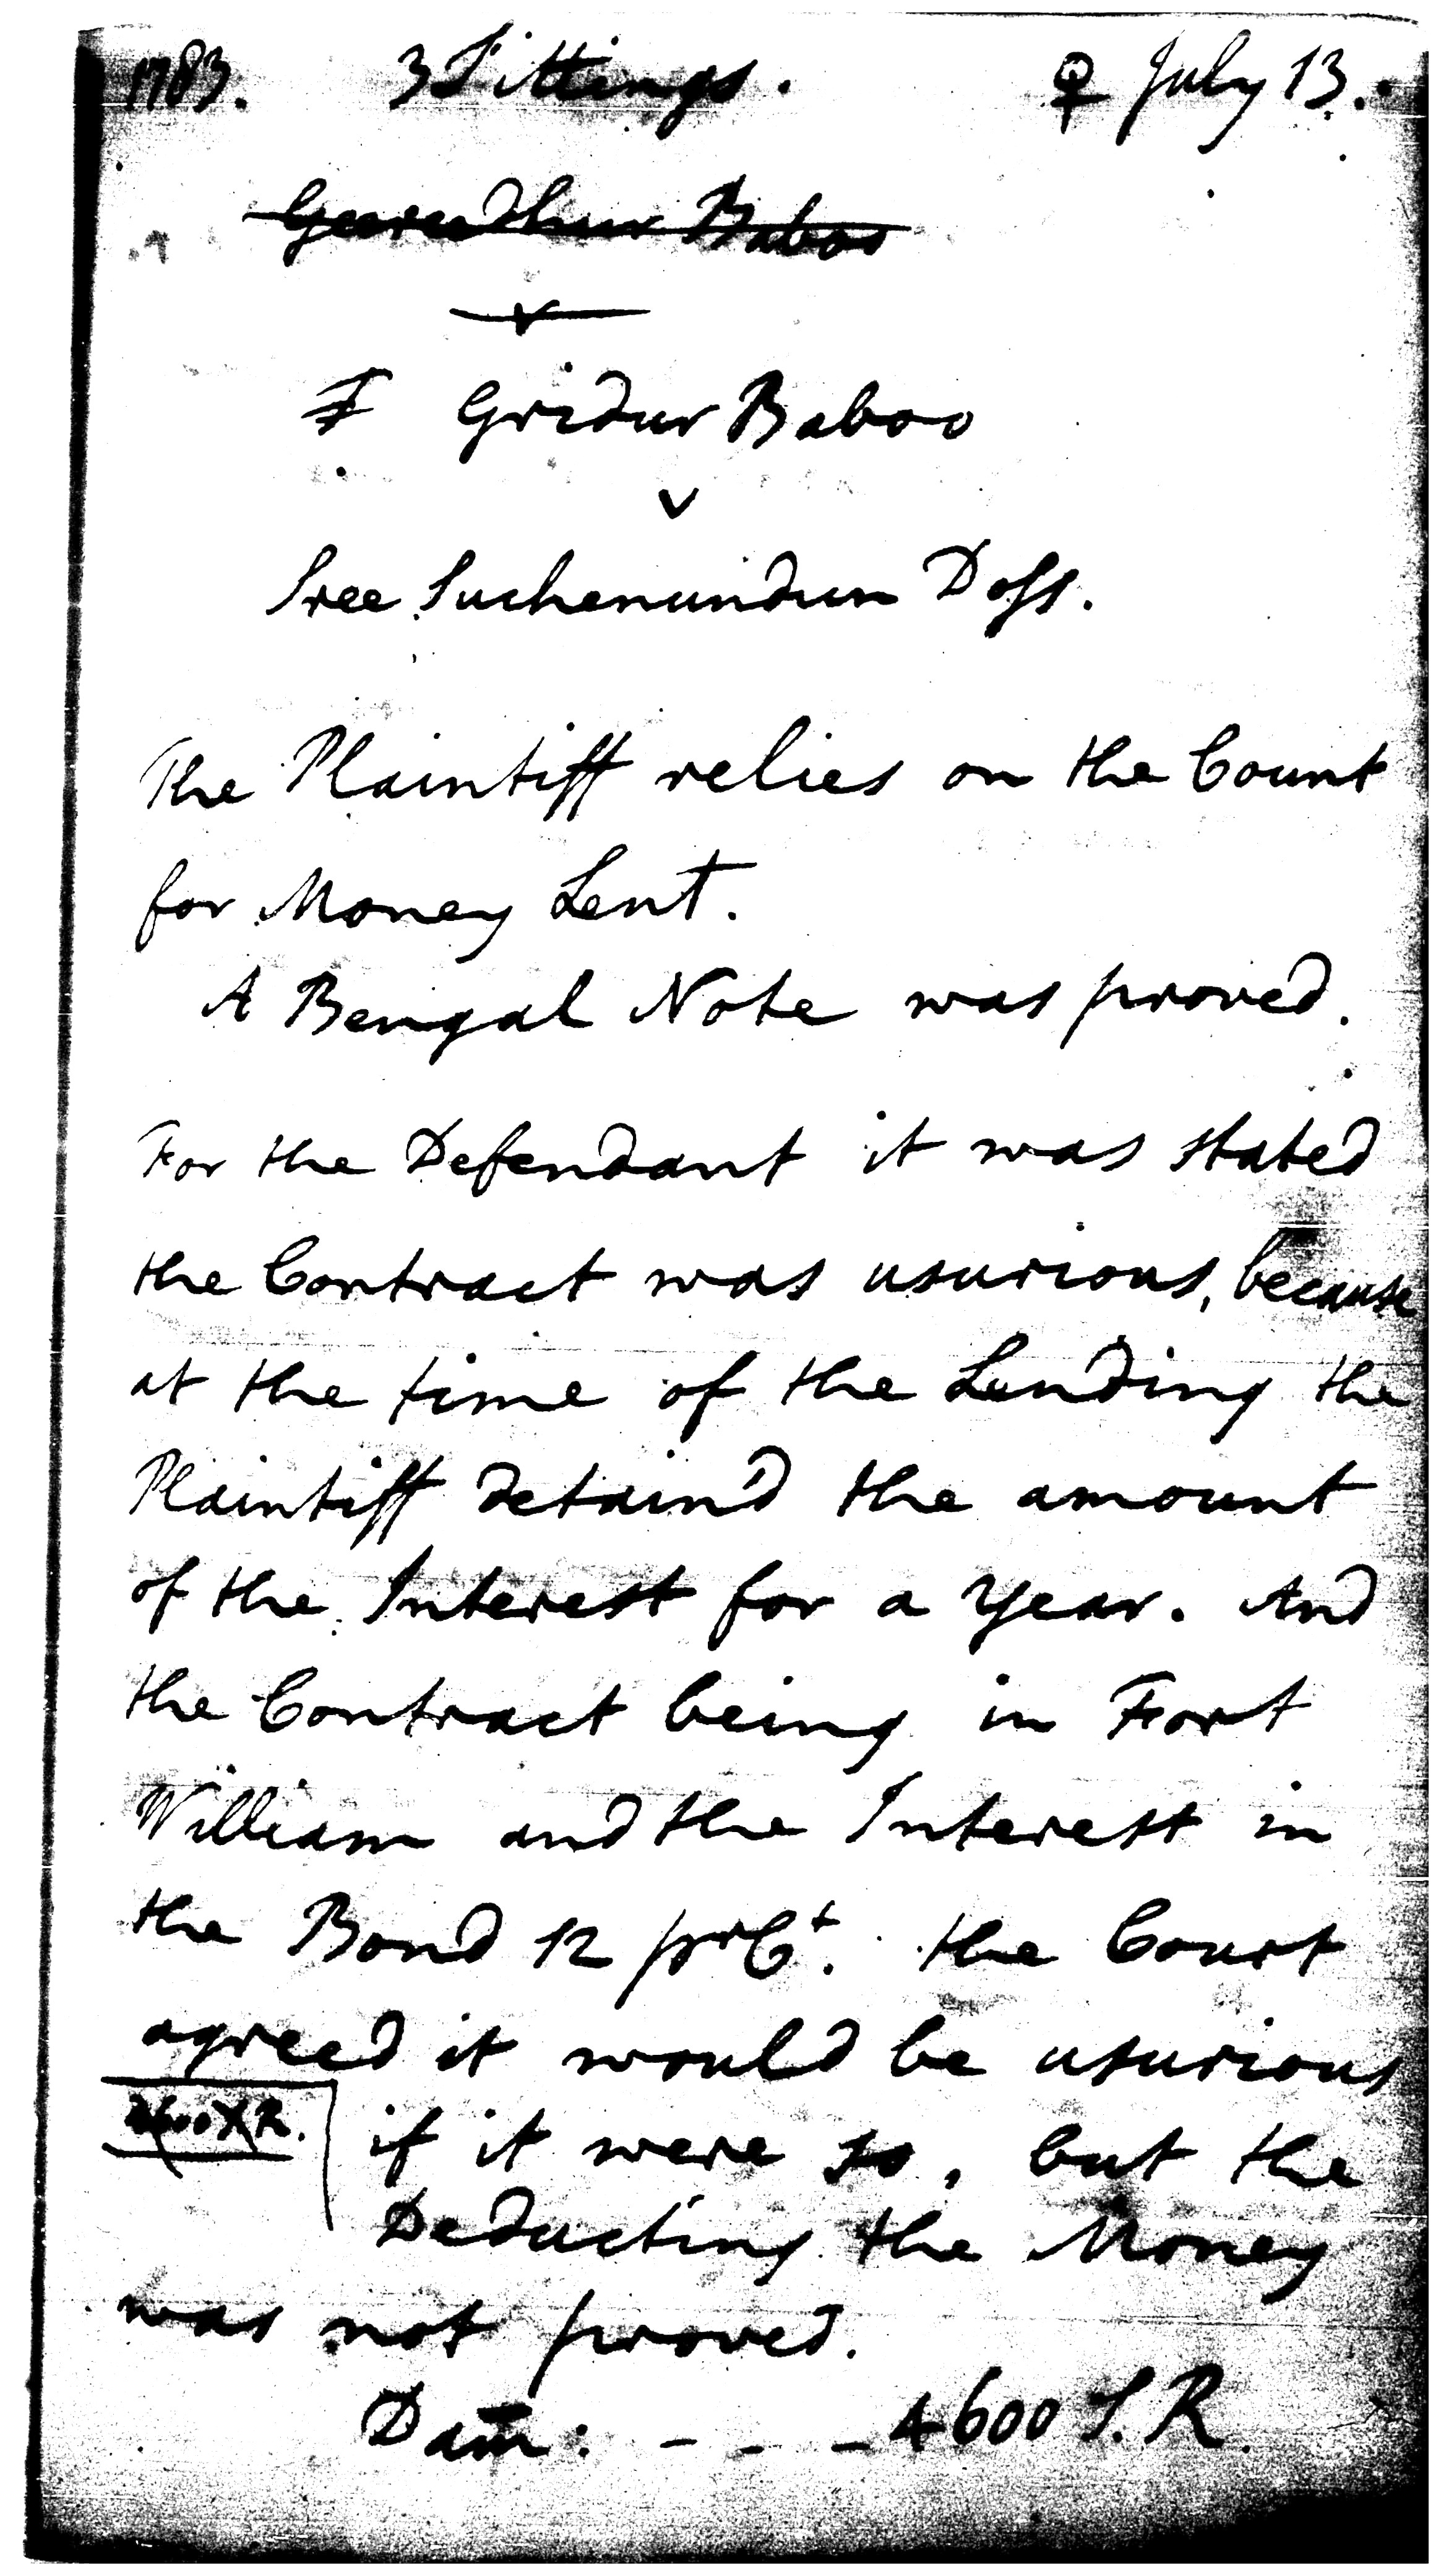 1783. 3 Sittings. ♀ July 13.
Gooroodhur Baboo
v
Gridur Baboo
v
Sree Suchenundun Doss.
The Plaintiff relies on the Count
for Money Lent.
A Bengal Note was proved.
For the Defendant it was stated
the Contract was usurious, because
at the time of the Lending the
Plaintiff detain'd the amount
of the Interest for a Year. And
the Contract being in Fort
William and the Interest in
the Bond 12 pr Ct. the Court
agreed it would be usurious
if it were so, but the
Deducting the Money
was not proved.
Dam: - - - 4600 S.R.